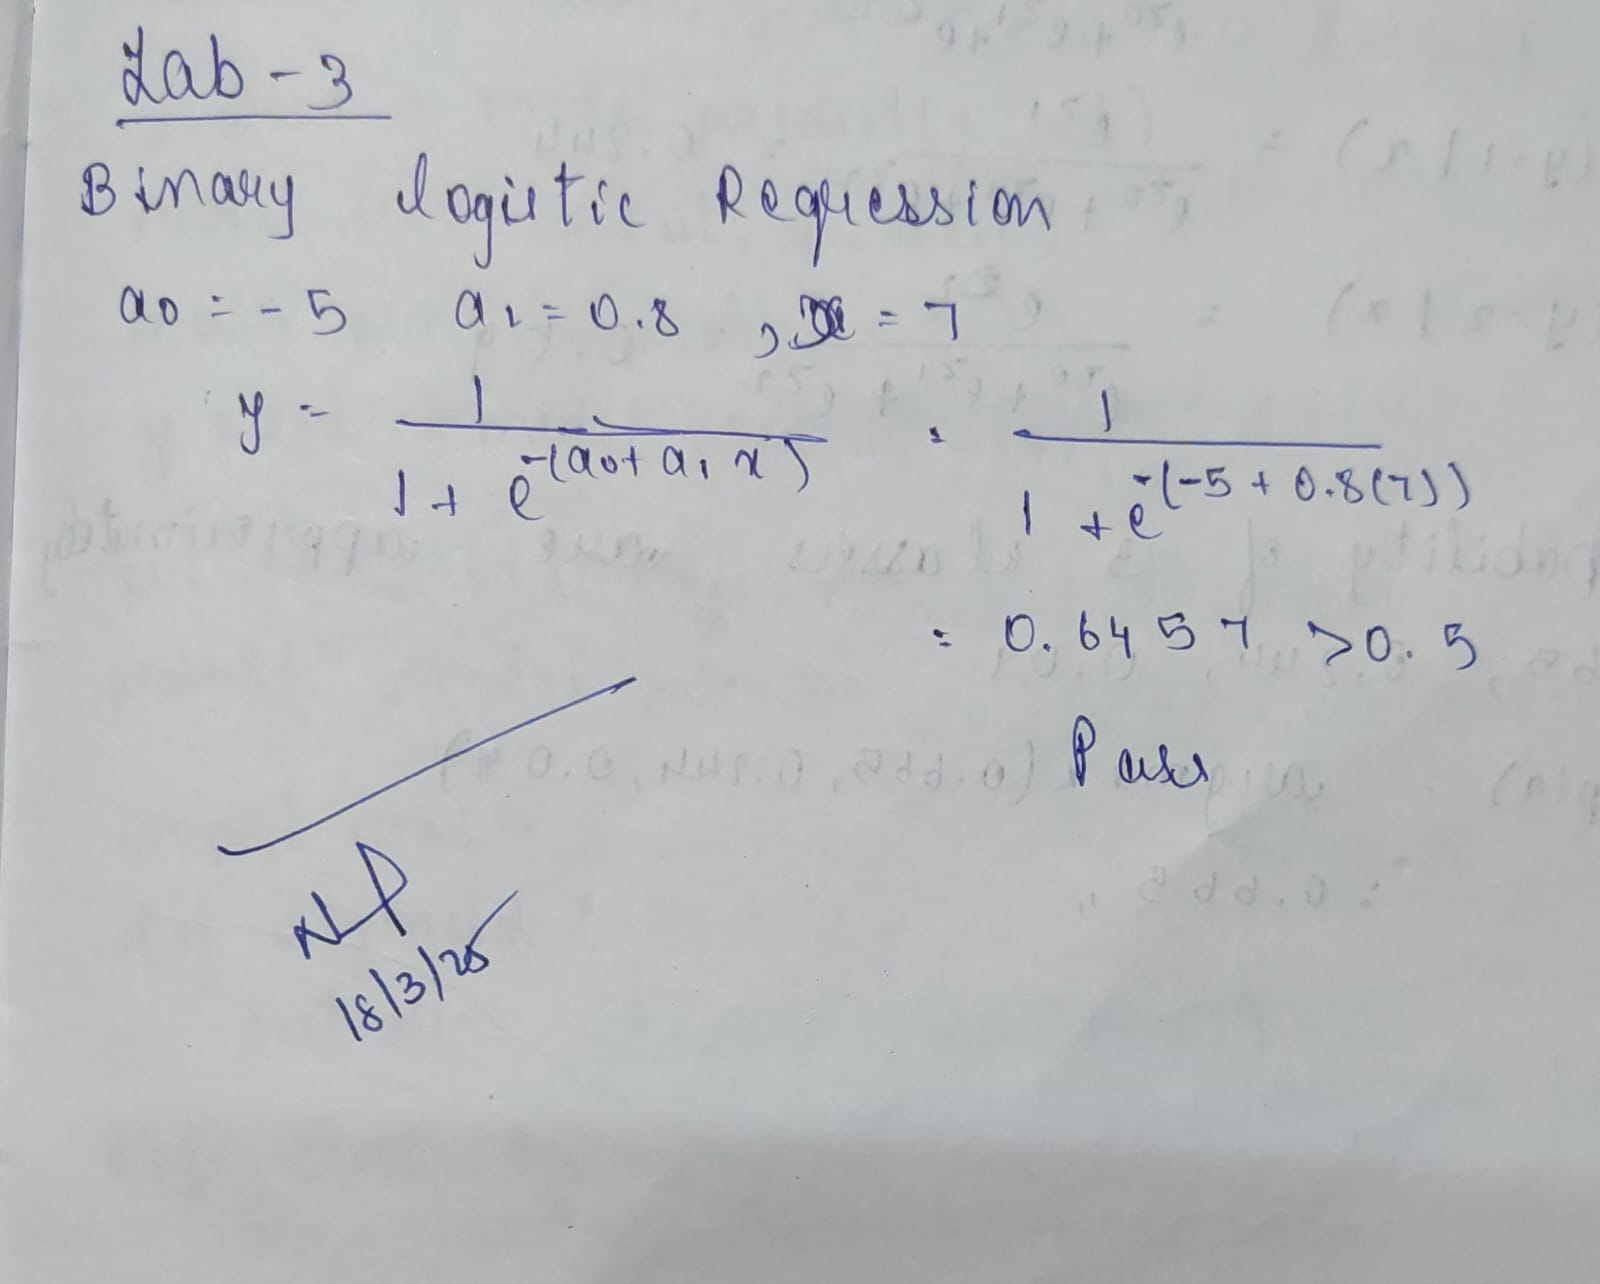 Lab - 3
Binary logistic Regression
a0 = - 5 a1 = 0.8 , x = 7
y = 1 / 1 + e^-(a0 + a1 x) = 1 / 1 + e^-(-5 + 0.8(7))
= 0.6457 > 0.5
Pass
18/3/25